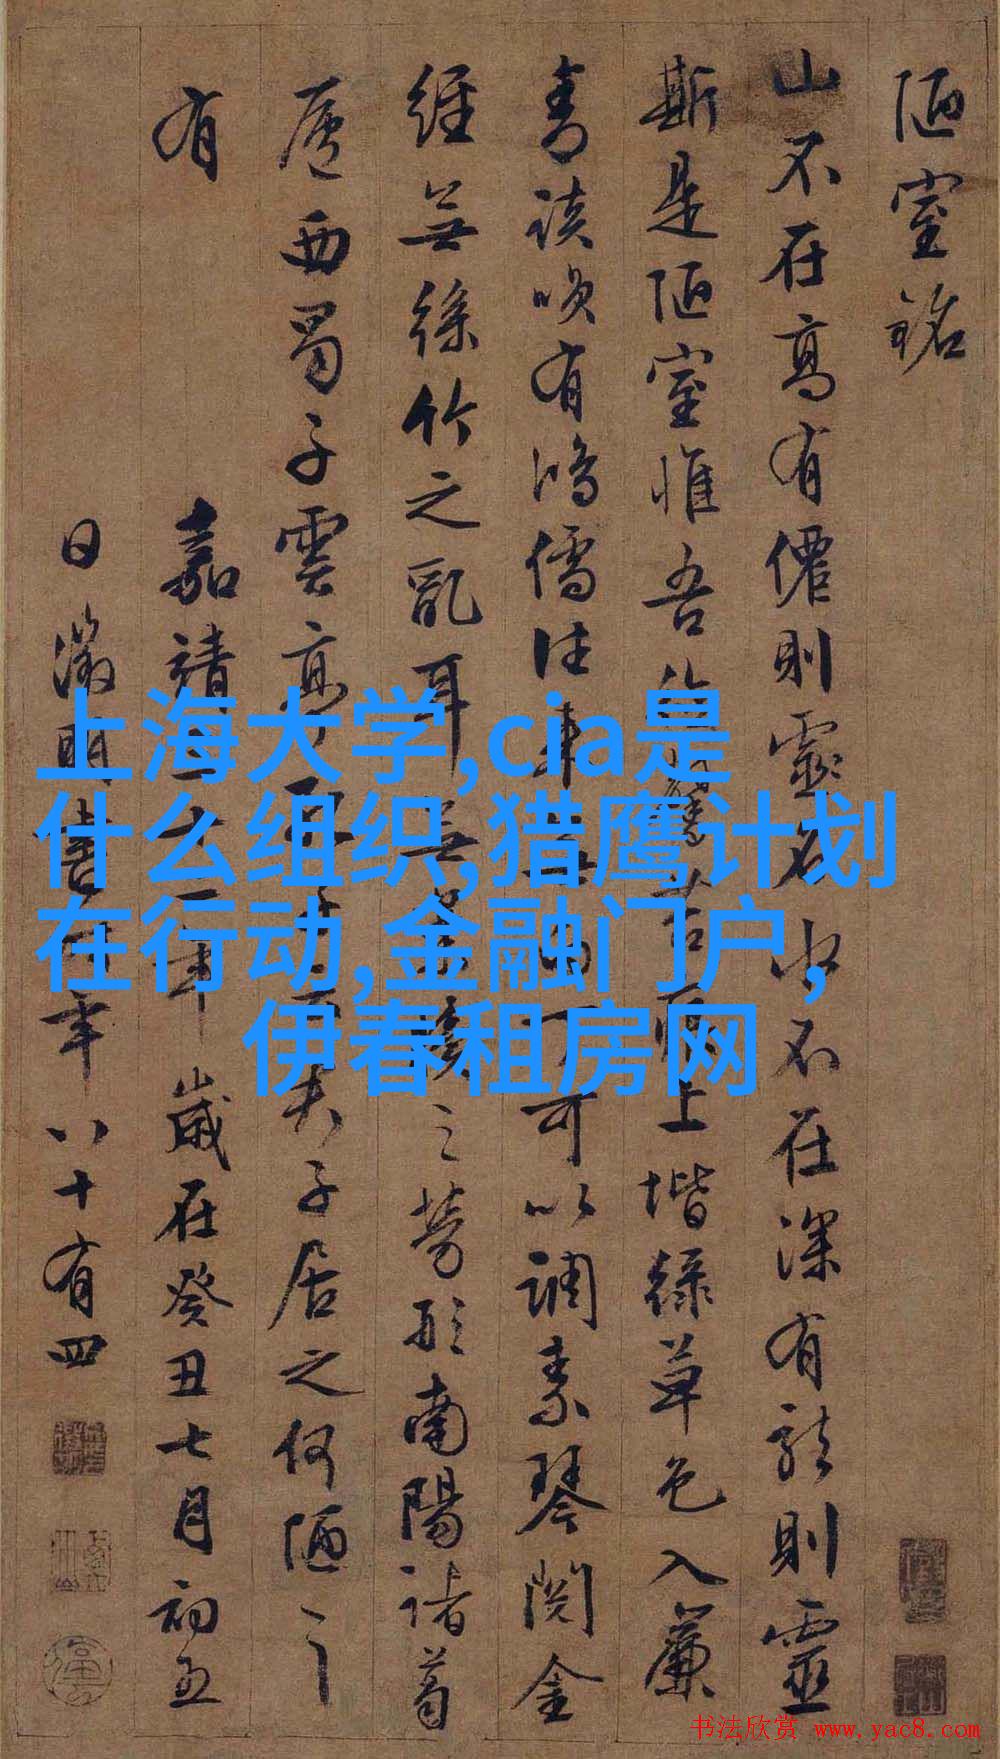 陋室銘
山不在高有僊則靈名水不在深有龍則靈
斯是陋室惟吾德馨苔痕上堦綠草色入簾
青談咲有鴻儒往來無白丁可以調素琴閱金
經無絲竹之亂耳無案牘之勞形南陽諸葛
廬西蜀子雲亭孔子云夫子居之何陋之
有　嘉靖三十二年歲在癸丑七月初五
日徵明書時年八十有四
上海大学,cia是
什么组织,猎鹰计划
在行动,金融门户,
伊春租房网
书法欣赏 www.yac8.com